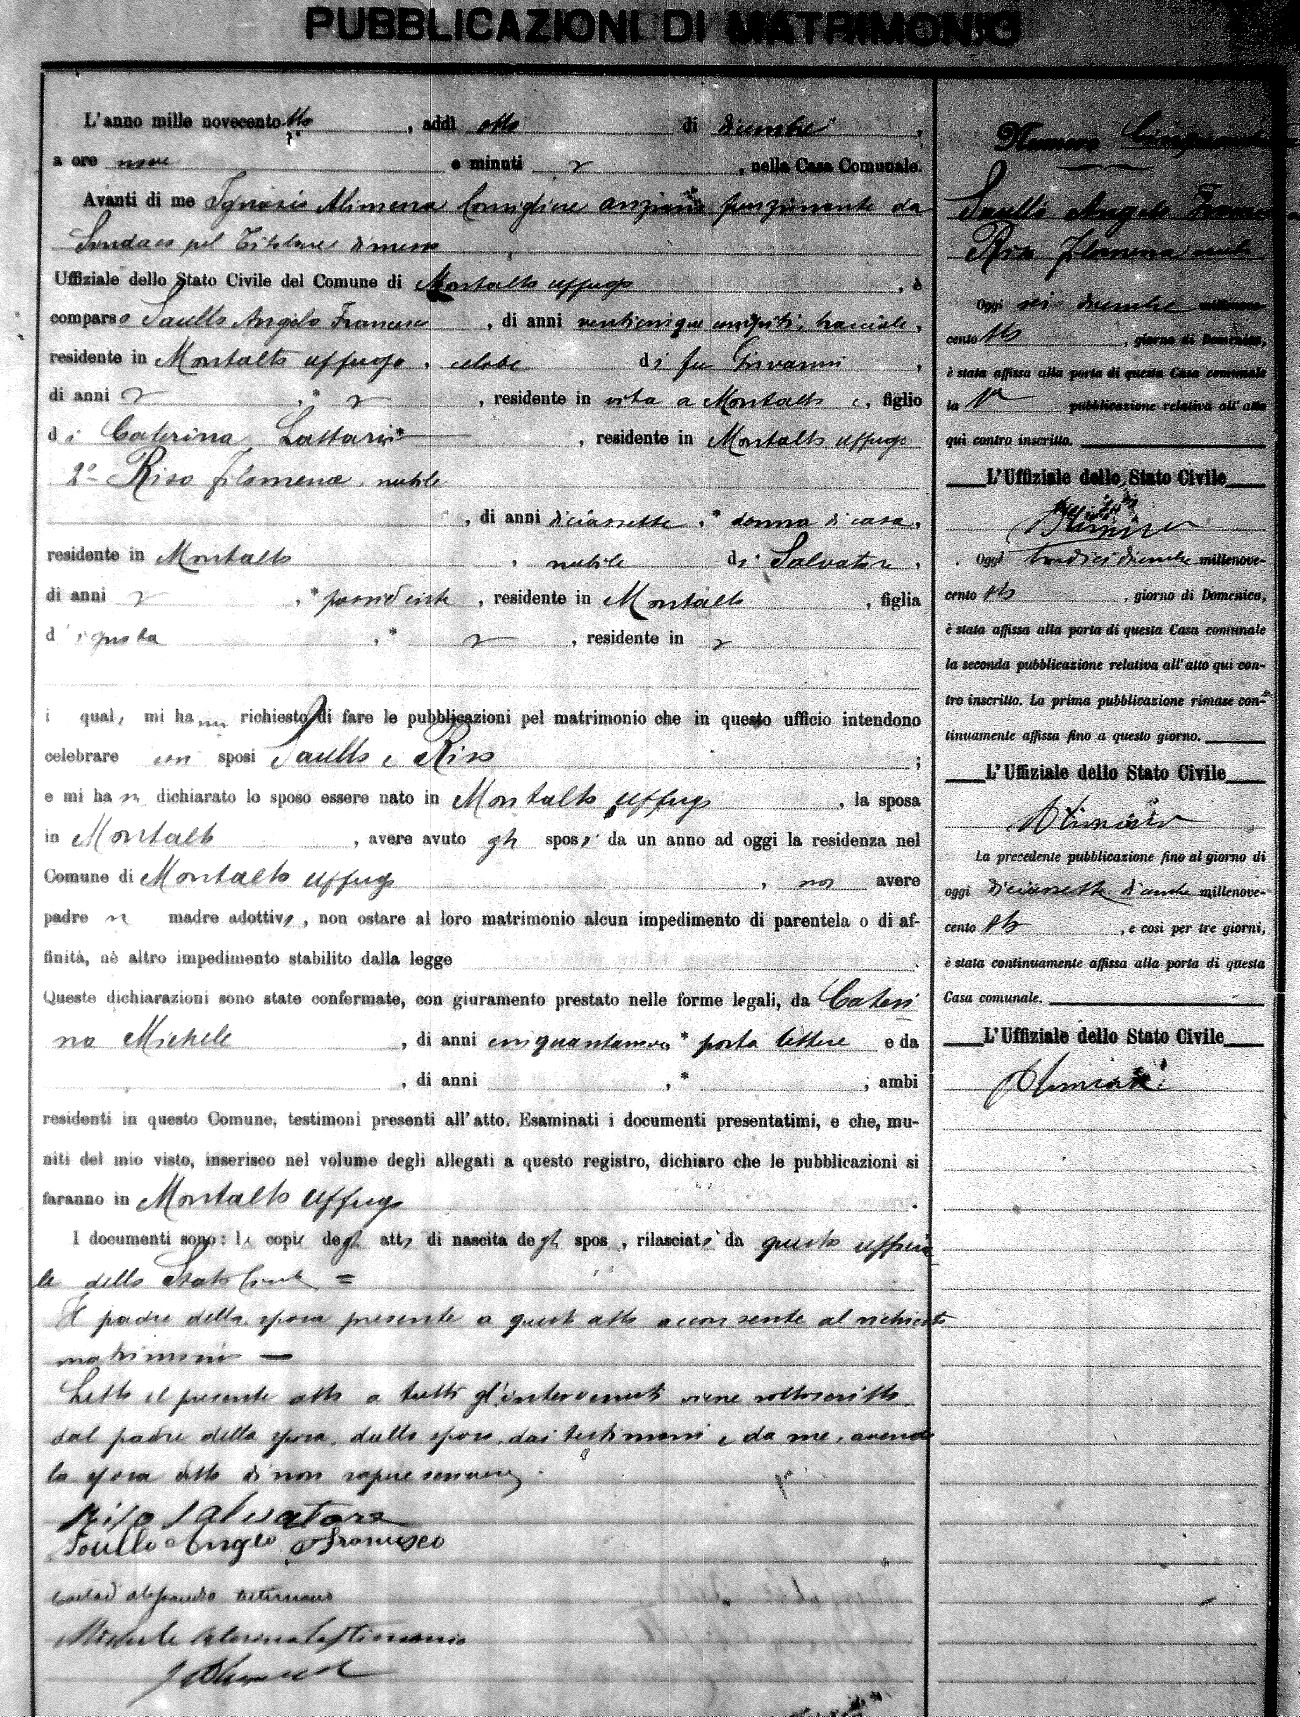 PUBBLICAZIONI DI MATRIMONIO
L'anno mille novecento otto, addì otto di dicembre,
a ore nove e minuti , nella Casa Comunale.
Avanti di me Ignazio Alimena Consigliere anziano funzionante da
Sindaco pel Titolare dimesso
Uffiziale dello Stato Civile del Comune di Montalto Uffugo, è
comparso Saullo Angelo Francesco, di anni venticinque compiti, bracciale,
residente in Montalto Uffugo, celibe di fu Giovanni,
di anni , * , residente in vita a Montalto e, figlio
di Caterina Lattari * , residente in Montalto Uffugo
2º Riso Filomena, nubile
, di anni diciassette, * donna di casa,
residente in Montalto, nubile di Salvatore,
di anni , * possidente, residente in Montalto, figlia
d'ignota, * , residente in
i quali mi hanno richiesto di fare le pubblicazioni pel matrimonio che in questo ufficio intendono
celebrare essi sposi Saullo e Riso ;
e mi han dichiarato lo sposo essere nato in Montalto Uffugo, la sposa
in Montalto, avere avuto gli sposi da un anno ad oggi la residenza nel
Comune di Montalto Uffugo, non avere
padre n madre adottivi, non ostare al loro matrimonio alcun impedimento di parentela o di af-
finità, nè altro impedimento stabilito dalla legge .
Queste dichiarazioni sono state confermate, con giuramento prestato nelle forme legali, da Cateri
na Michele, di anni cinquantanove, * porta lettere e da
, di anni , * ; ambi
residenti in questo Comune, testimoni presenti all'atto. Esaminati i documenti presentatimi, e che, mu-
niti del mio visto, inserisco nel volume degli allegati a questo registro, dichiaro che le pubblicazioni si
faranno in Montalto Uffugo .
I documenti sono: le copie degli atti di nascita degli sposi, rilasciate da questo uffizia
le dello Stato Civile =
Il padre della sposa presente a quest'atto acconsente al richiesto
matrimonio —
Letto il presente atto a tutti gl'intervenuti viene sottoscritto
dal padre della sposa, dallo sposo, dai testimoni e da me, avendo
la sposa detto di non sapere scrivere.
Riso Salvatore
Saullo Angelo Francesco
testimonio
Michele Caterina testimonio
I Alimena
Numero
Saullo Angelo
Riso Filomena nubile
Oggi sei dicembre millenove-
cento otto, giorno di Domenica,
è stata affissa alla porta di questa Casa comunale
la 1ª pubblicazione relativa all'atto
qui contro inscritto.
L'Uffiziale dello Stato Civile
Alimena
Oggi tredici dicembre millenove-
cento otto, giorno di Domenica,
è stata affissa alla porta di questa Casa comunale
la seconda pubblicazione relativa all'atto qui con-
tro inscritto. La prima pubblicazione rimase con-
tinuamente affissa fino a questo giorno.
L'Uffiziale dello Stato Civile
Alimena
La precedente pubblicazione fino al giorno di
oggi diciassette dicembre millenove-
cento otto, e così per tre giorni,
è stata continuamente affissa alla porta di questa
Casa comunale.
L'Uffiziale dello Stato Civile
Alimena